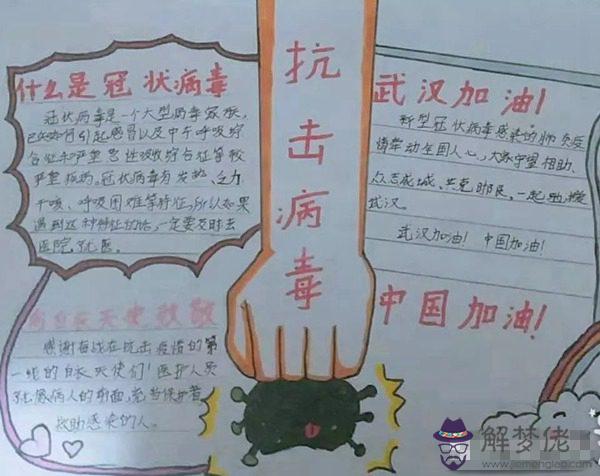 什么是冠状病毒
冠状病毒是一个大型病毒家族,
已知可引起感冒以及中东呼吸综
合征和严重急性呼吸综合征等较
严重疾病。冠状病毒有发热、乏力、
干咳、呼吸困难等特征,所以如果
遇到这种特征的话,一定要及时去
医院就医。
向白衣天使致敬
感谢奋战在抗击疫情的第
一线的白衣天使们!医护人员
病人的前面,
救助感染的人。
抗击病毒
武汉加油!
新型冠状病毒感染的肺炎疫
情牵动全国人心,大家守望相助、
众志成城、共克时艰,一起
武汉。
武汉加油! 中国加油!
中国加油!
解梦佬
www.jiemenglao.com